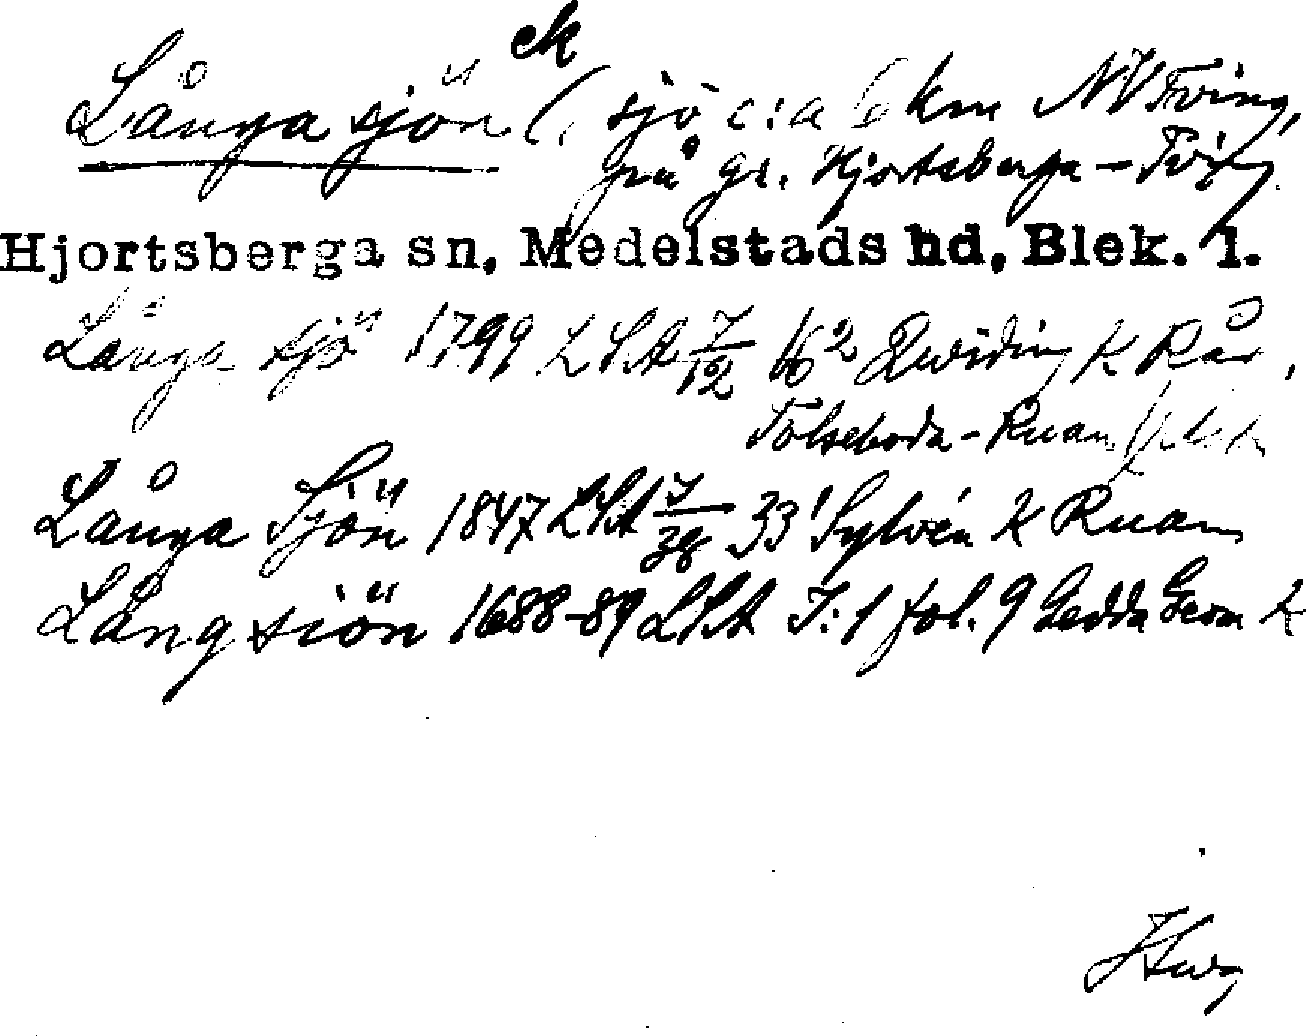 ek
Långa sjön (sjö c:a 6 km NV Tving,
på gr. Hjortsberga - Tving.
Hjortsberga sn, Medelstads hd, Blek. l.
Långa sjö 1799 LSA 7/12 16² Qwiding K Rår,
Tolseboda - Ruam
Långa Sjön 1847 LSA 7/38 33' Sylvén K Ruam
Lång siön 1688-89 LSA I:1 fol. 9 Gedda Geom K